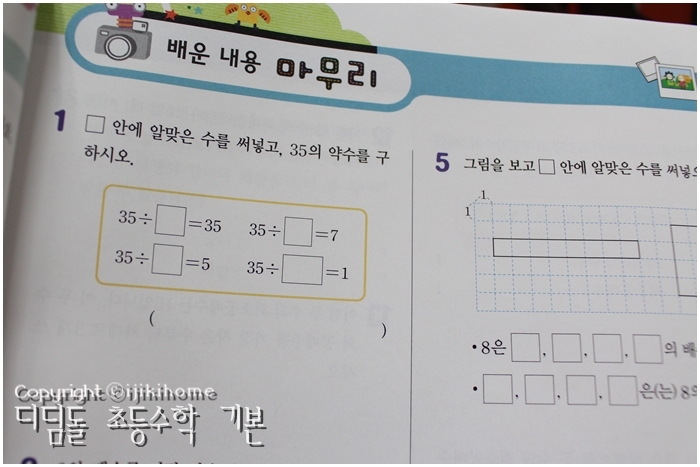 배운 내용 마무리
1 □ 안에 알맞은 수를 써넣고, 35의 약수를 구
하시오.
35÷□=35 35÷□=7
35÷□=5 35÷□=1
( )
5 그림을 보고 □ 안에 알맞은 수를 써넣으
1
1
•8은 □, □, □, □의 배
•□, □, □, □은(는) 8의
Copyright ⓒijikihome
디딤돌 초등수학 기본